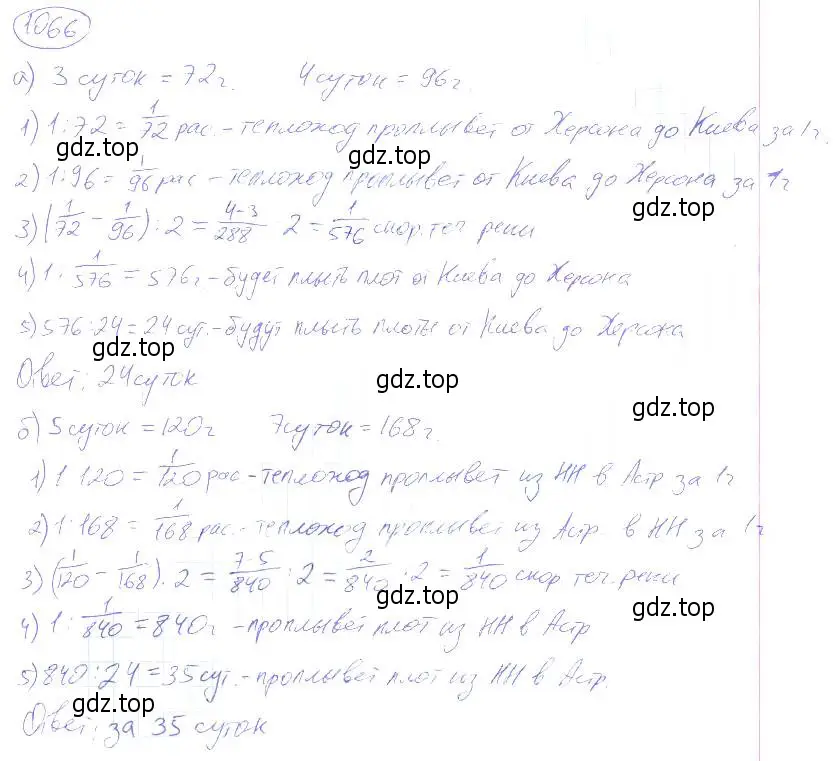 1066
а) 3 суток = 72 г. 4 суток = 96 г.
1) 1:72 = 1/72 рас. - теплоход проплывет от Херсона до Киева за 1г.
gdz.top gdz.top
2) 1:96 = 1/96 рас - теплоход проплывет от Киева до Херсона за 1г
gdz.top
3) (1/72 - 1/96) : 2 = 4-3/288 2 = 1/576 скор. теч реки
4) 1 · 1/576 = 576г - будет плыть плот от Киева до Херсона
5) 576:24 = 24 сут. - будут плыть плоты от Киева до Херсона
gdz.top
Ответ: 24 суток
gdz.top
gdz.top
б) 5 суток = 120г 7 суток = 168 г.
1) 1 120 = 1/120 рас - теплоход проплывет из НН в Астр за 1г
2) 1:168 = 1/168 рас. - теплоход проплывет из Астр. в НН за 1г
3) (1/120 - 1/168) · 2 = 7-5/840 : 2 = 2/840 · 2 = 1/840 скор теч. реки
gdz.top gdz.top
4) 1 : 1/840 = 840г - проплывет плот из НН в Астр
5) 840:24 = 35 сут. - проплывет плот из НН в Астр.
gdz.top gdz.top gdz.top
Ответ: за 35 суток